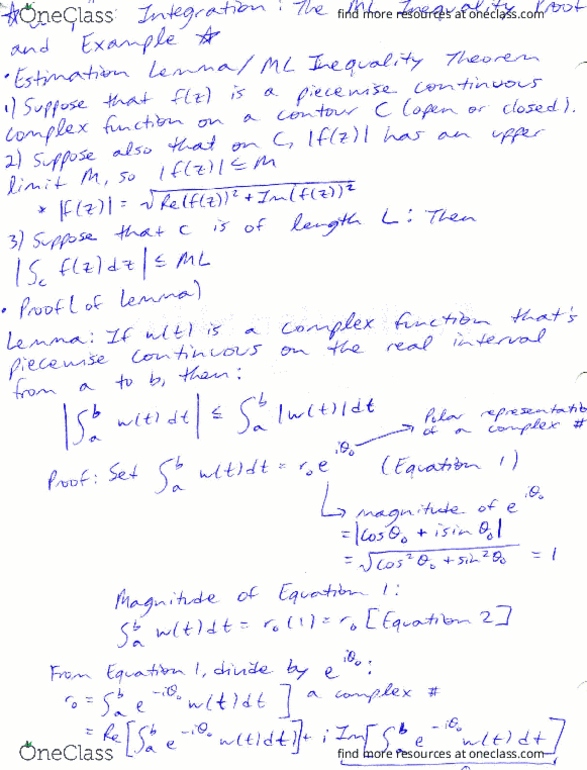 OneClass
find more resources at oneclass.com
Integration: The ML Inequality Proof
and Example ☆
• Estimation Lemma/ML Inequality Theorem
1) Suppose that f(z) is a piecewise continuous
complex function on a contour C (open or closed).
2) Suppose also that on C, |f(z)| has an upper
limit M, so |f(z)| ≤ M
* |f(z)| = √Re(f(z))² + Im(f(z))²
3) Suppose that C is of length L: Then
|∫c f(z)dz| ≤ ML
• Proof (of Lemma)
Lemma: If w(t) is a complex function that's
piecewise continuous on the real interval
from a to b, then:
|∫ₐᵇ w(t)dt| ≤ ∫ₐᵇ |w(t)|dt
Polar representatio
of a complex #
Proof: Set ∫ₐᵇ w(t)dt = r₀e^(iθ₀) (Equation 1)
↳ magnitude of e^(iθ₀)
= |cosθ₀ + isinθ₀|
= √cos²θ₀ + sin²θ₀ = 1
Magnitude of Equation 1:
∫ₐᵇ w(t)dt = r₀(1) = r₀ [Equation 2]
From Equation 1, divide by e^(iθ₀):
r₀ = ∫ₐᵇ e^(-iθ₀) w(t)dt ] a complex #
= Re[∫ₐᵇ e^(-iθ₀) w(t)dt] + i Im[∫ₐᵇ e^(-iθ₀) w(t)dt]
OneClass
find more resources at oneclass.com